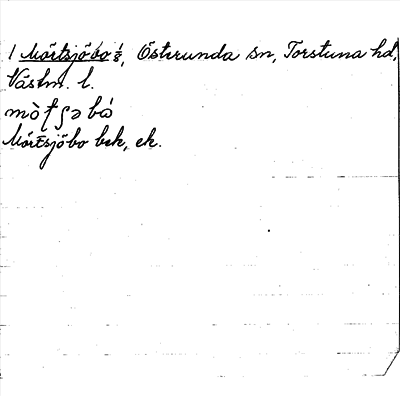 1 Mörtsjöbo s, Österunda sn, Torstuna hd,
Västm. l.
Mörtsjöbo bek, ek.